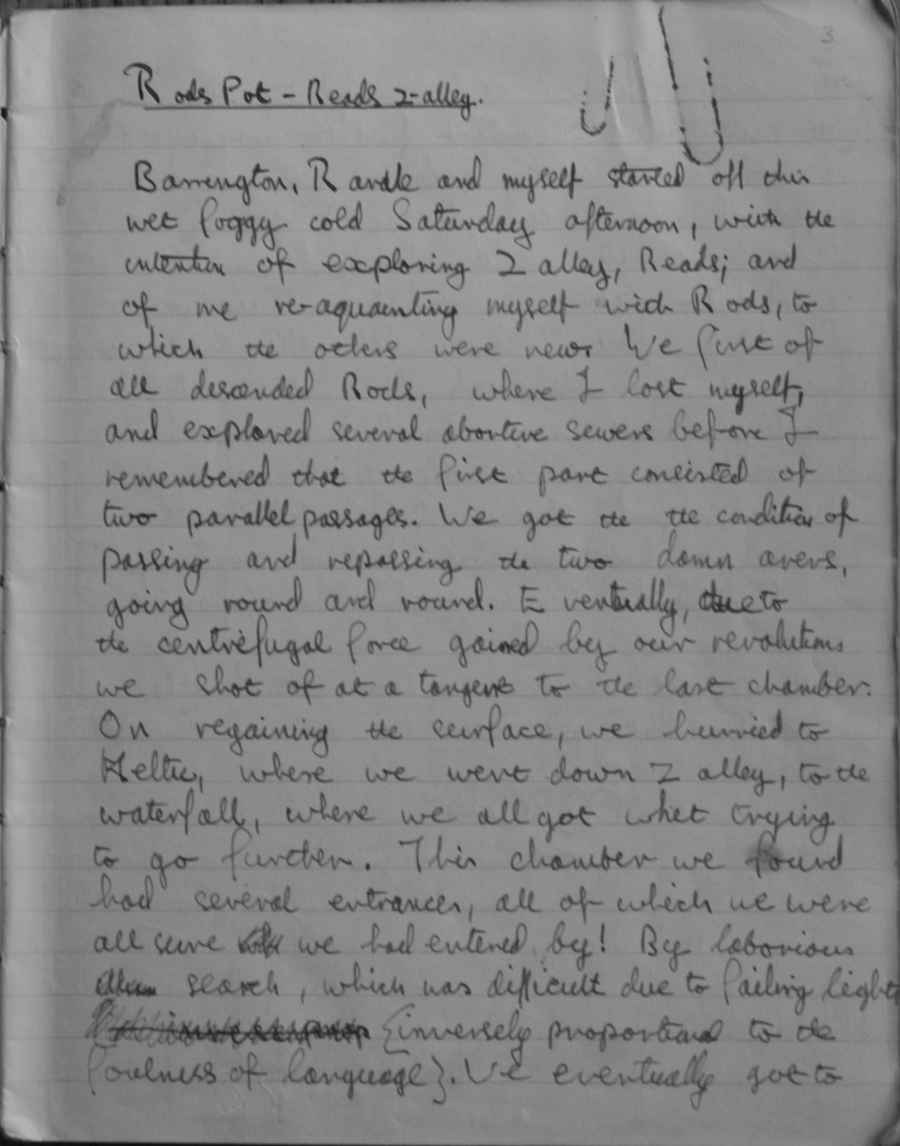 3
Rods Pot - Reads 2-alley.
Barrington, Randle and myself started off this
wet foggy cold Saturday afternoon, with the
intention of exploring Z alley, Reads; and
of me re-aquainting myself with Rods, to
which the others were new. We first of
all descended Rods, where I lost myself,
and explored several abortive sewers before I
remembered that the first part consisted of
two parallel passages. We got the the condition of
passing and repassing the two damn avens,
going round and round. Eventually, due to
the centrifugal force gained by our revolutions
we shot of at a tangent to the last chamber.
On regaining the surface, we hurried to
where we went down Z alley, to the
waterfall, where we all got whet trying
to go further. This chamber we found
had several entrances, all of which we were
all sure we had entered by! By laborious
search, which was difficult due to failing light
{inversely proportional to the
foulness of language}. We eventually got to